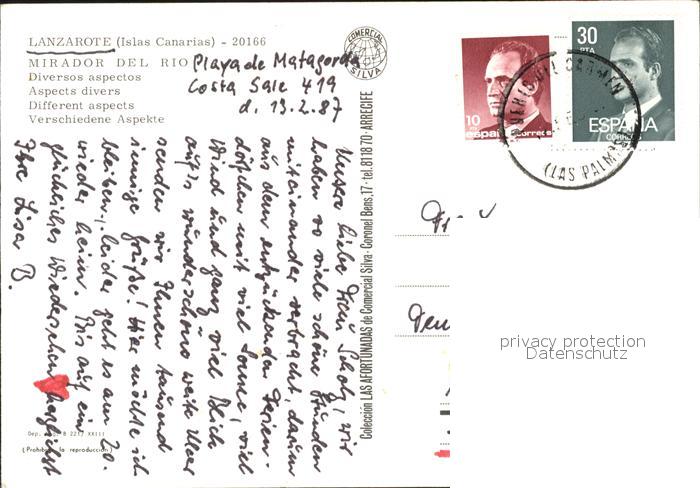 LANZAROTE (Islas Canarias) - 20166
MIRADOR DEL RIO
Diversos aspectos
Aspects divers
Different aspects
Verschiedene Aspekte
Playa de Matagorda
Costa Sale 419
d. 13.2.87
COMERCIAL
SILVA
10
españa correos
30
PTA
ESPAÑA
CORREOS
(LAS PALM
Unsere liebe Frau Scholz, wir
haben so viele schöne Stunden
miteinander verbracht, darum
aus dem entzückenden Ferien-
dörfchen mit viel Sonne, viel
Wind und ganz viel Blick
auf's wunderschöne weite Meer
senden wir Ihnen tausend
innige Grüße! Hier möchte ich
bleiben, leider geht es am 20.
wieder heim. Bis auf ein
glückliches Wiedersehen herzlichst
Ihre Lisa B.
Colección LAS AFORTUNADAS de Comercial Silva - Coronel Bens, 17 - tel. 81 18 70 - ARRECIFE
Dep. B 2217 XXIII
(Prohibida la reproducción)
privacy protection
Datenschutz